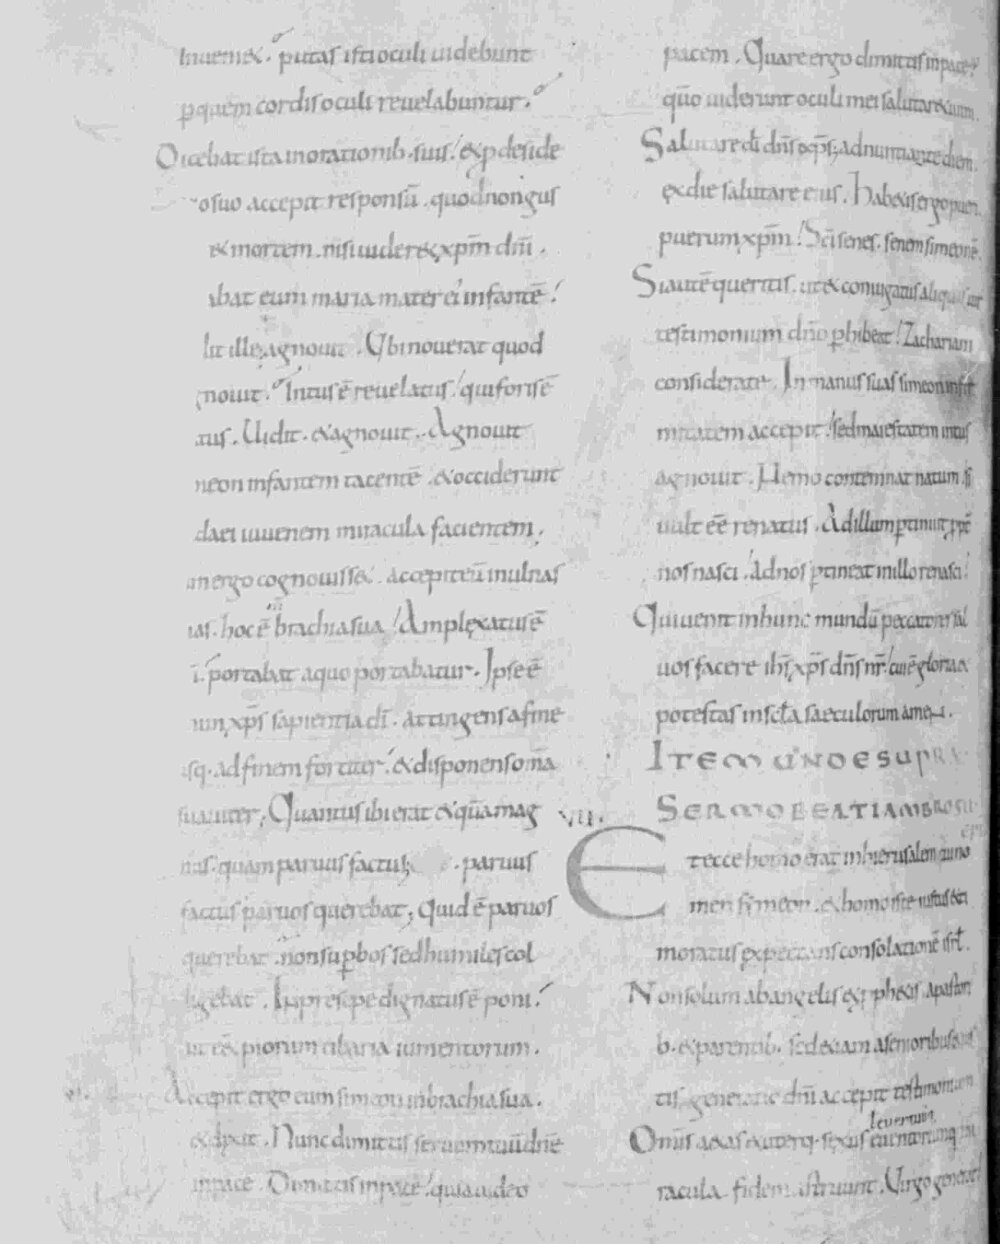 inueniet. putas isti oculi uidebunt
p quem cordis oculi reuelabuntur.
Dicebat ista in orationib. suis. et p deside
suo accepit responsū. quod non gus
et mortem. nisi uideret xp̄m dn̄i.
bat eum maria mater ei infantē.
ille agnouit. Ubi nouerat quod
nouit. Intus ē reuelatus. qui foris ē
tus. Uidit. et agnouit. Agnouit
infantem tacentē. et occiderunt
daei iuuenem miracula facientem.
ergo cognouisset. accepit eū in ulnas
hoc ē brachia sua. Amplexatus ē
portabat a quo portabatur. Ipse ē
xp̄s sapientia dī. attingens a fine
usq. ad finem fortiter. et disponens om̄a
suauiter, Quantus ibi erat et quā mag
nus. quam paruus factus. paruus
factus paruos querebat, Quid ē paruos
querebat. non supbos sed humiles col
ligebat. In presepe dignatus ē poni.
ut eēt piorum cibaria iumentorum.
VI. Accepit ergo eum simeon in brachia sua.
et dixit. Nunc dimittis seruum tuū dn̄e
in pace. Dimittis in pace. quia uideo
pacem. Quare ergo dimittis in pace.
qm̄ uiderunt oculi mei salutare tuum.
Salutare dī dn̄s xp̄s, adnuntiate diem
ex die salutare eius. Habetis ergo
puerum xp̄m. Scī senes. senem simeonē.
Si autē queritis. ut ex coniugatis aliquis
testimonium dn̄o phibeat. Zachariam
considerate. In manus suas simeon infir
mitatem accepit. sed maiestatem intus
agnouit. Nemo contemnat natum si
uult eē renatus. Ad illum ptinuit pp̄t
nos nasci. Ad nos ptineat in illo renasci.
Qui uenit in hunc mundū peccatores sal
uos facere ih̄s xp̄s dn̄s nr̄. cui ē gloria et
potestas in scl̄a saeculorum amen.
ITEM UNDE SUPRA
VII. SERMO BEATI AMBROSII EPI
Et ecce homo erat in hierusalem cui no
men simeon. et homo iste iustus et ti
moratus expectans consolationē isrl̄.
Non solum ab angelis et pphetis. apastori
b. et parentib. sed etiam a senioribus et ius
tis generatio dn̄i accepit testimonium
Om̄is aetas et uterq. sexus euentorumq. mi
racula. fidem astruunt. Uirgo generat